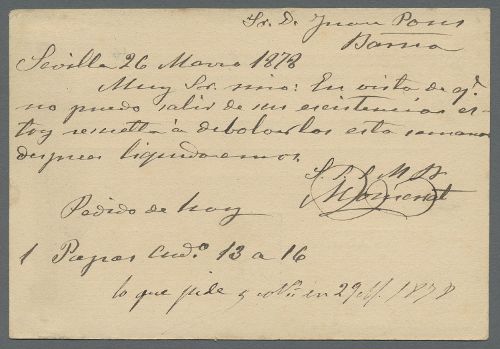 Sr. D. Juan Pons
Barna
Sevilla 26 Marzo 1878
Muy Sr. mio: En vista de qe.
no puedo salir de sus existencias es-
toy resuelto á debolverlos esta semana
despues liquidaremos.
S. S. S. Q. B. S. M.
Pedido de hoy
1 Papas Cuad.o 13 a 16
lo que pide y en 29 M. 1878